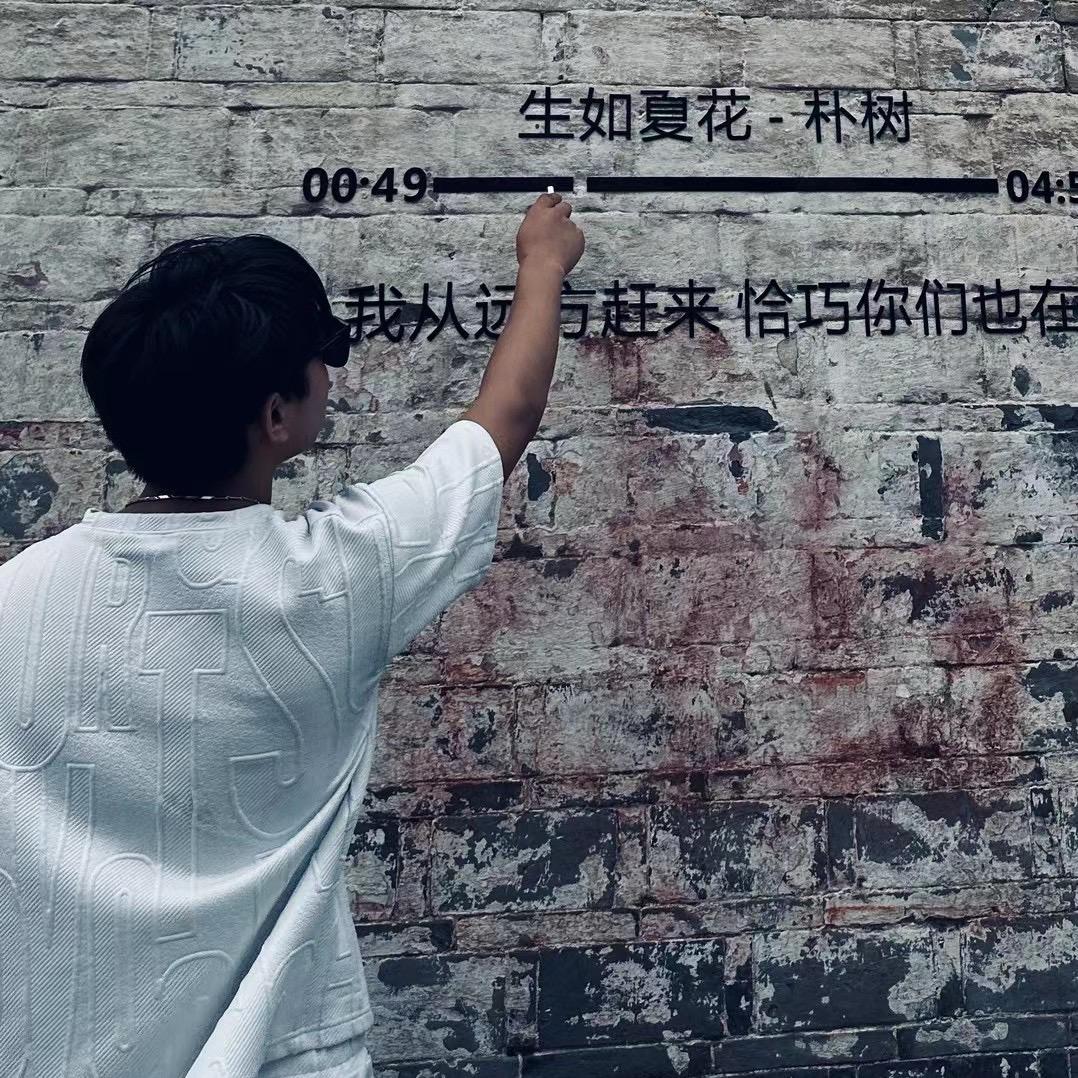 生如夏花 - 朴树
00:49 04:5
我从远方赶来 恰巧你们也在